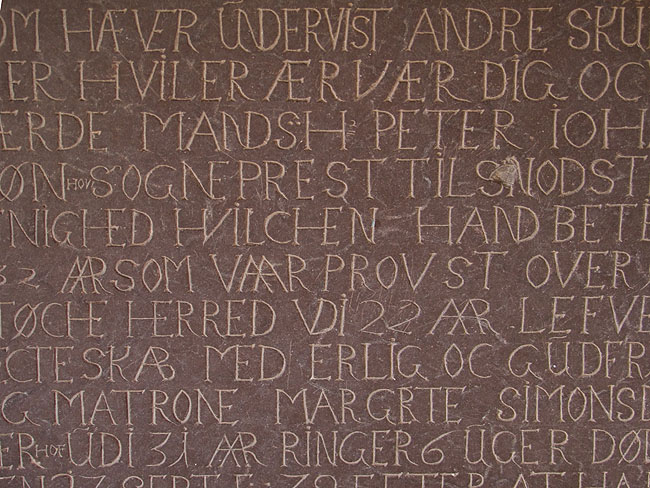 OM HÆVER ŪNDERVIST ANDRE SKŪ
ER HVILER ÆRVÆR DIG OC
ERDE MANDS: Hr PETER IOHA
ØN HOV SOGNEPREST TIL SNODST
NIGHED HVILCHEN HAND BETE
32 AAR SOM VAAR PROVST OVER
TØCHE HERRED VDI 22 AAR LEFVE
ECTESKAB MED ERLIG OC GUDFR
G MATRONE MARGRTE SIMONSE
ER HOF ŪDI 31 AAR RINGER 6 ŪGER DØD
EN 27 SEPTE 78 EFTER AT HA